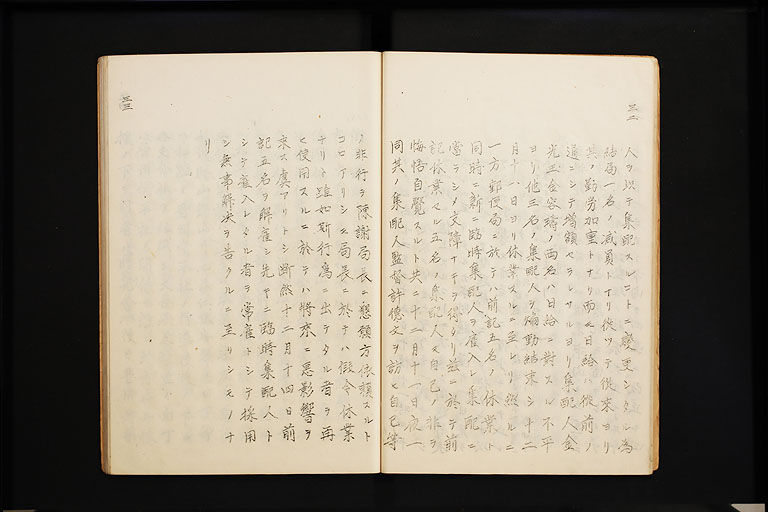 三二
人ヲ以テ集配スルコトニ変更シタル為
結局一名ノ減員トナリ従ツテ従来ヨリ
其ノ勤労加重トナリ而モ日給ハ従前ノ
通ニシテ増額セラレサルヨリ集配人金
光玉金容燾ノ両名ハ日給ニ対スル不平
ヨリ他三名ノ集配人ヲ煽動結束シ十二
月十一日ヨリ休業スルニ至レリ然ルニ
一方郵便局ニ於テハ前記五名ノ休業ト
同時ニ新ニ臨時集配人ヲ雇入レ集配ニ
当ラシメ支障ナキヲ得タリ茲ニ於テ前
記休業セル五名ノ集配人モ自己ノ非ヲ
悔悟自覚スルト共ニ十二月十一日夜一
同其ノ集配人監督許徳文ヲ訪ヒ自己等
ノ非行ヲ陳謝局長ニ懇願方依頼スルト
コロアリシモ局長ニ於テハ仮令休業
ナリト雖如斯行為ニ出テタル者ヲ再
ヒ使用スルニ於テハ将来ニ悪影響ヲ
来ス虞アリトシ断然十二月十四日前
記五名ヲ解雇シ先キニ臨時集配人ト
シテ雇入レタル者ヲ常雇トシテ採用
シ無事解決ヲ告クルニ至リシモノナ
リ
三三